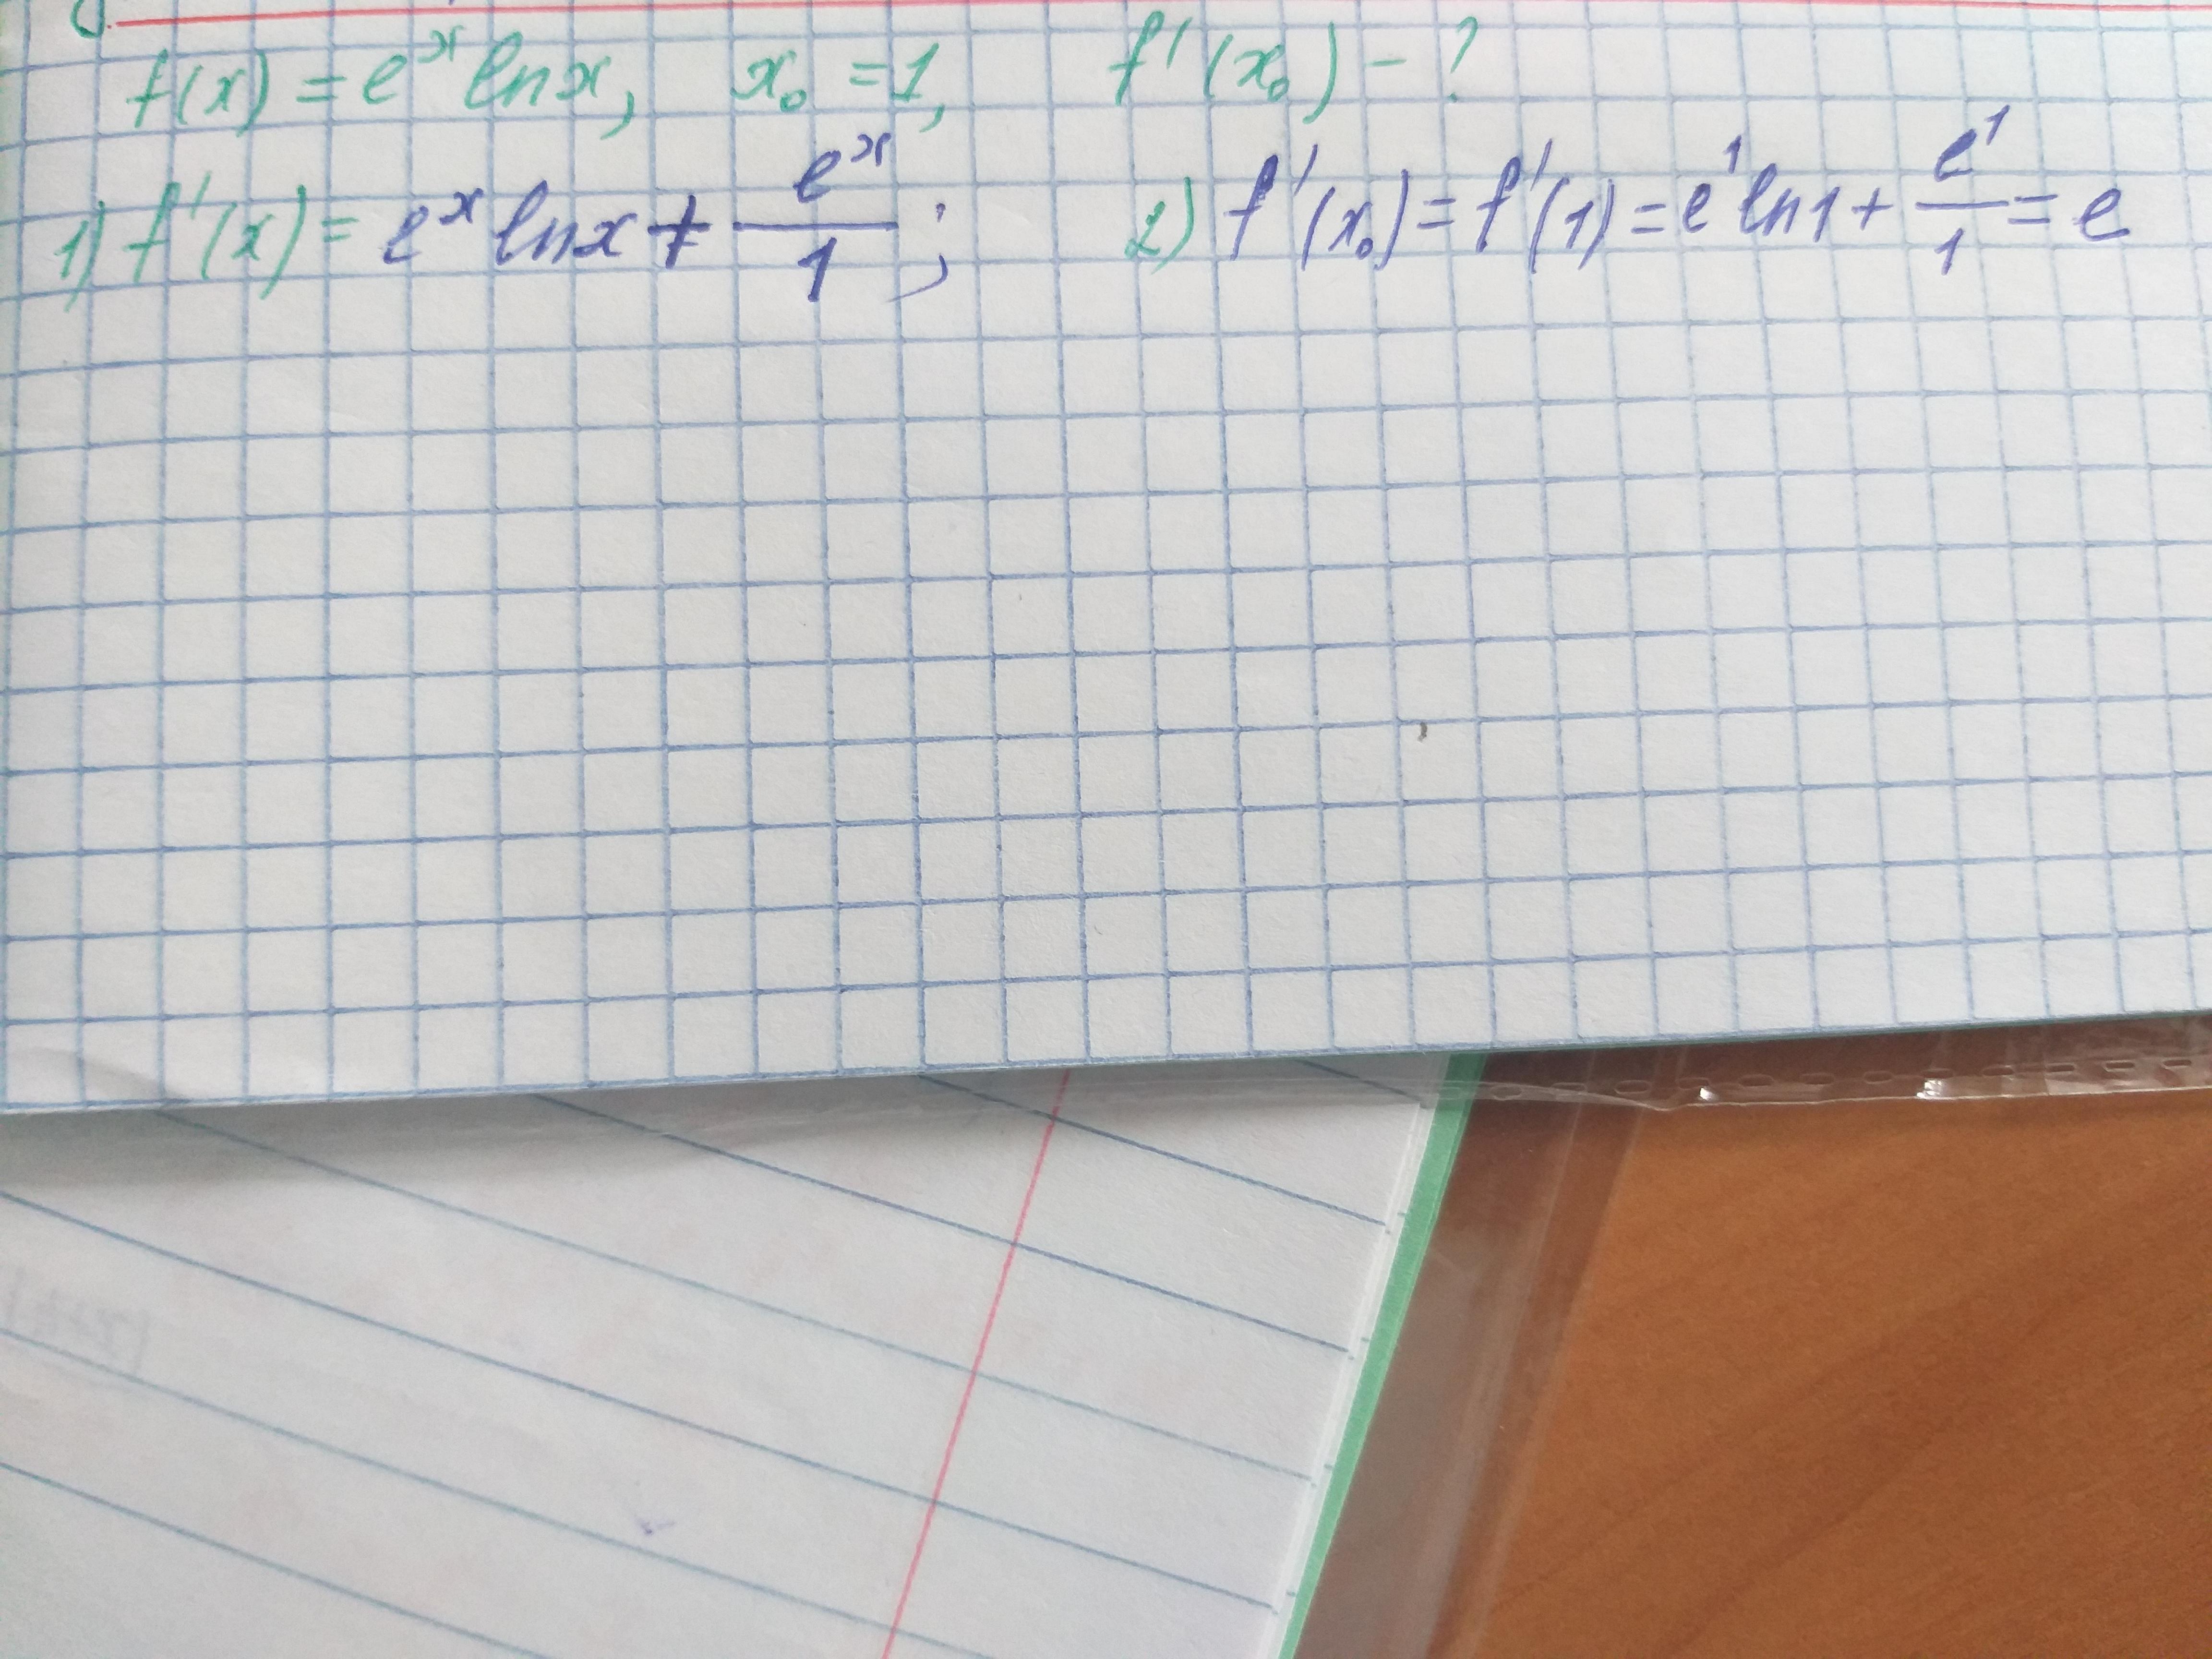 f(x) = e^x ln x, x₀ = 1, f'(x₀) - ?
1) f'(x) = e^x ln x + e^x/1 ; 2) f'(x₀) = f'(1) = e^1 ln 1 + e^1/1 = e